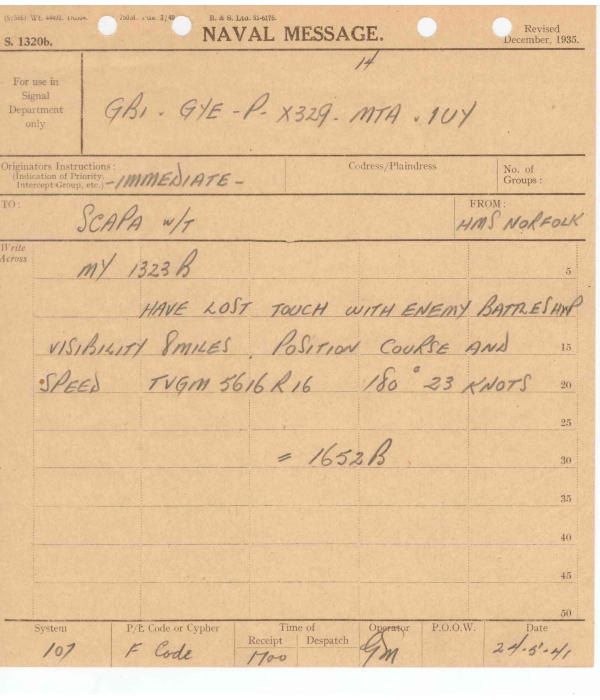 B. & S. Ltd. 51-6175.
S. 1320b.
NAVAL MESSAGE.
Revised
December, 1935.
14
For use in
Signal
Department
only
GBI . GYE - P - X329 - MTA . 1UY
Originators Instructions :
(Indication of Priority,
Intercept Group, etc.)
- IMMEDIATE -
Codress/Plaindress
No. of
Groups :
TO:
SCAPA W/T
FROM:
HMS NORFOLK
Write
Across
MY 1323 B
5
HAVE LOST TOUCH WITH ENEMY BATTLESHIP
VISIBILITY 8 MILES . POSITION COURSE AND
15
SPEED TVGM 5616 R 16 180° 23 KNOTS
20
25
= 1652 B
30
35
40
45
50
System
P/L Code or Cypher
Time of
Receipt
Despatch
Operator
P.O.O.W.
Date
107
F Code
1700
GM
24-5-41